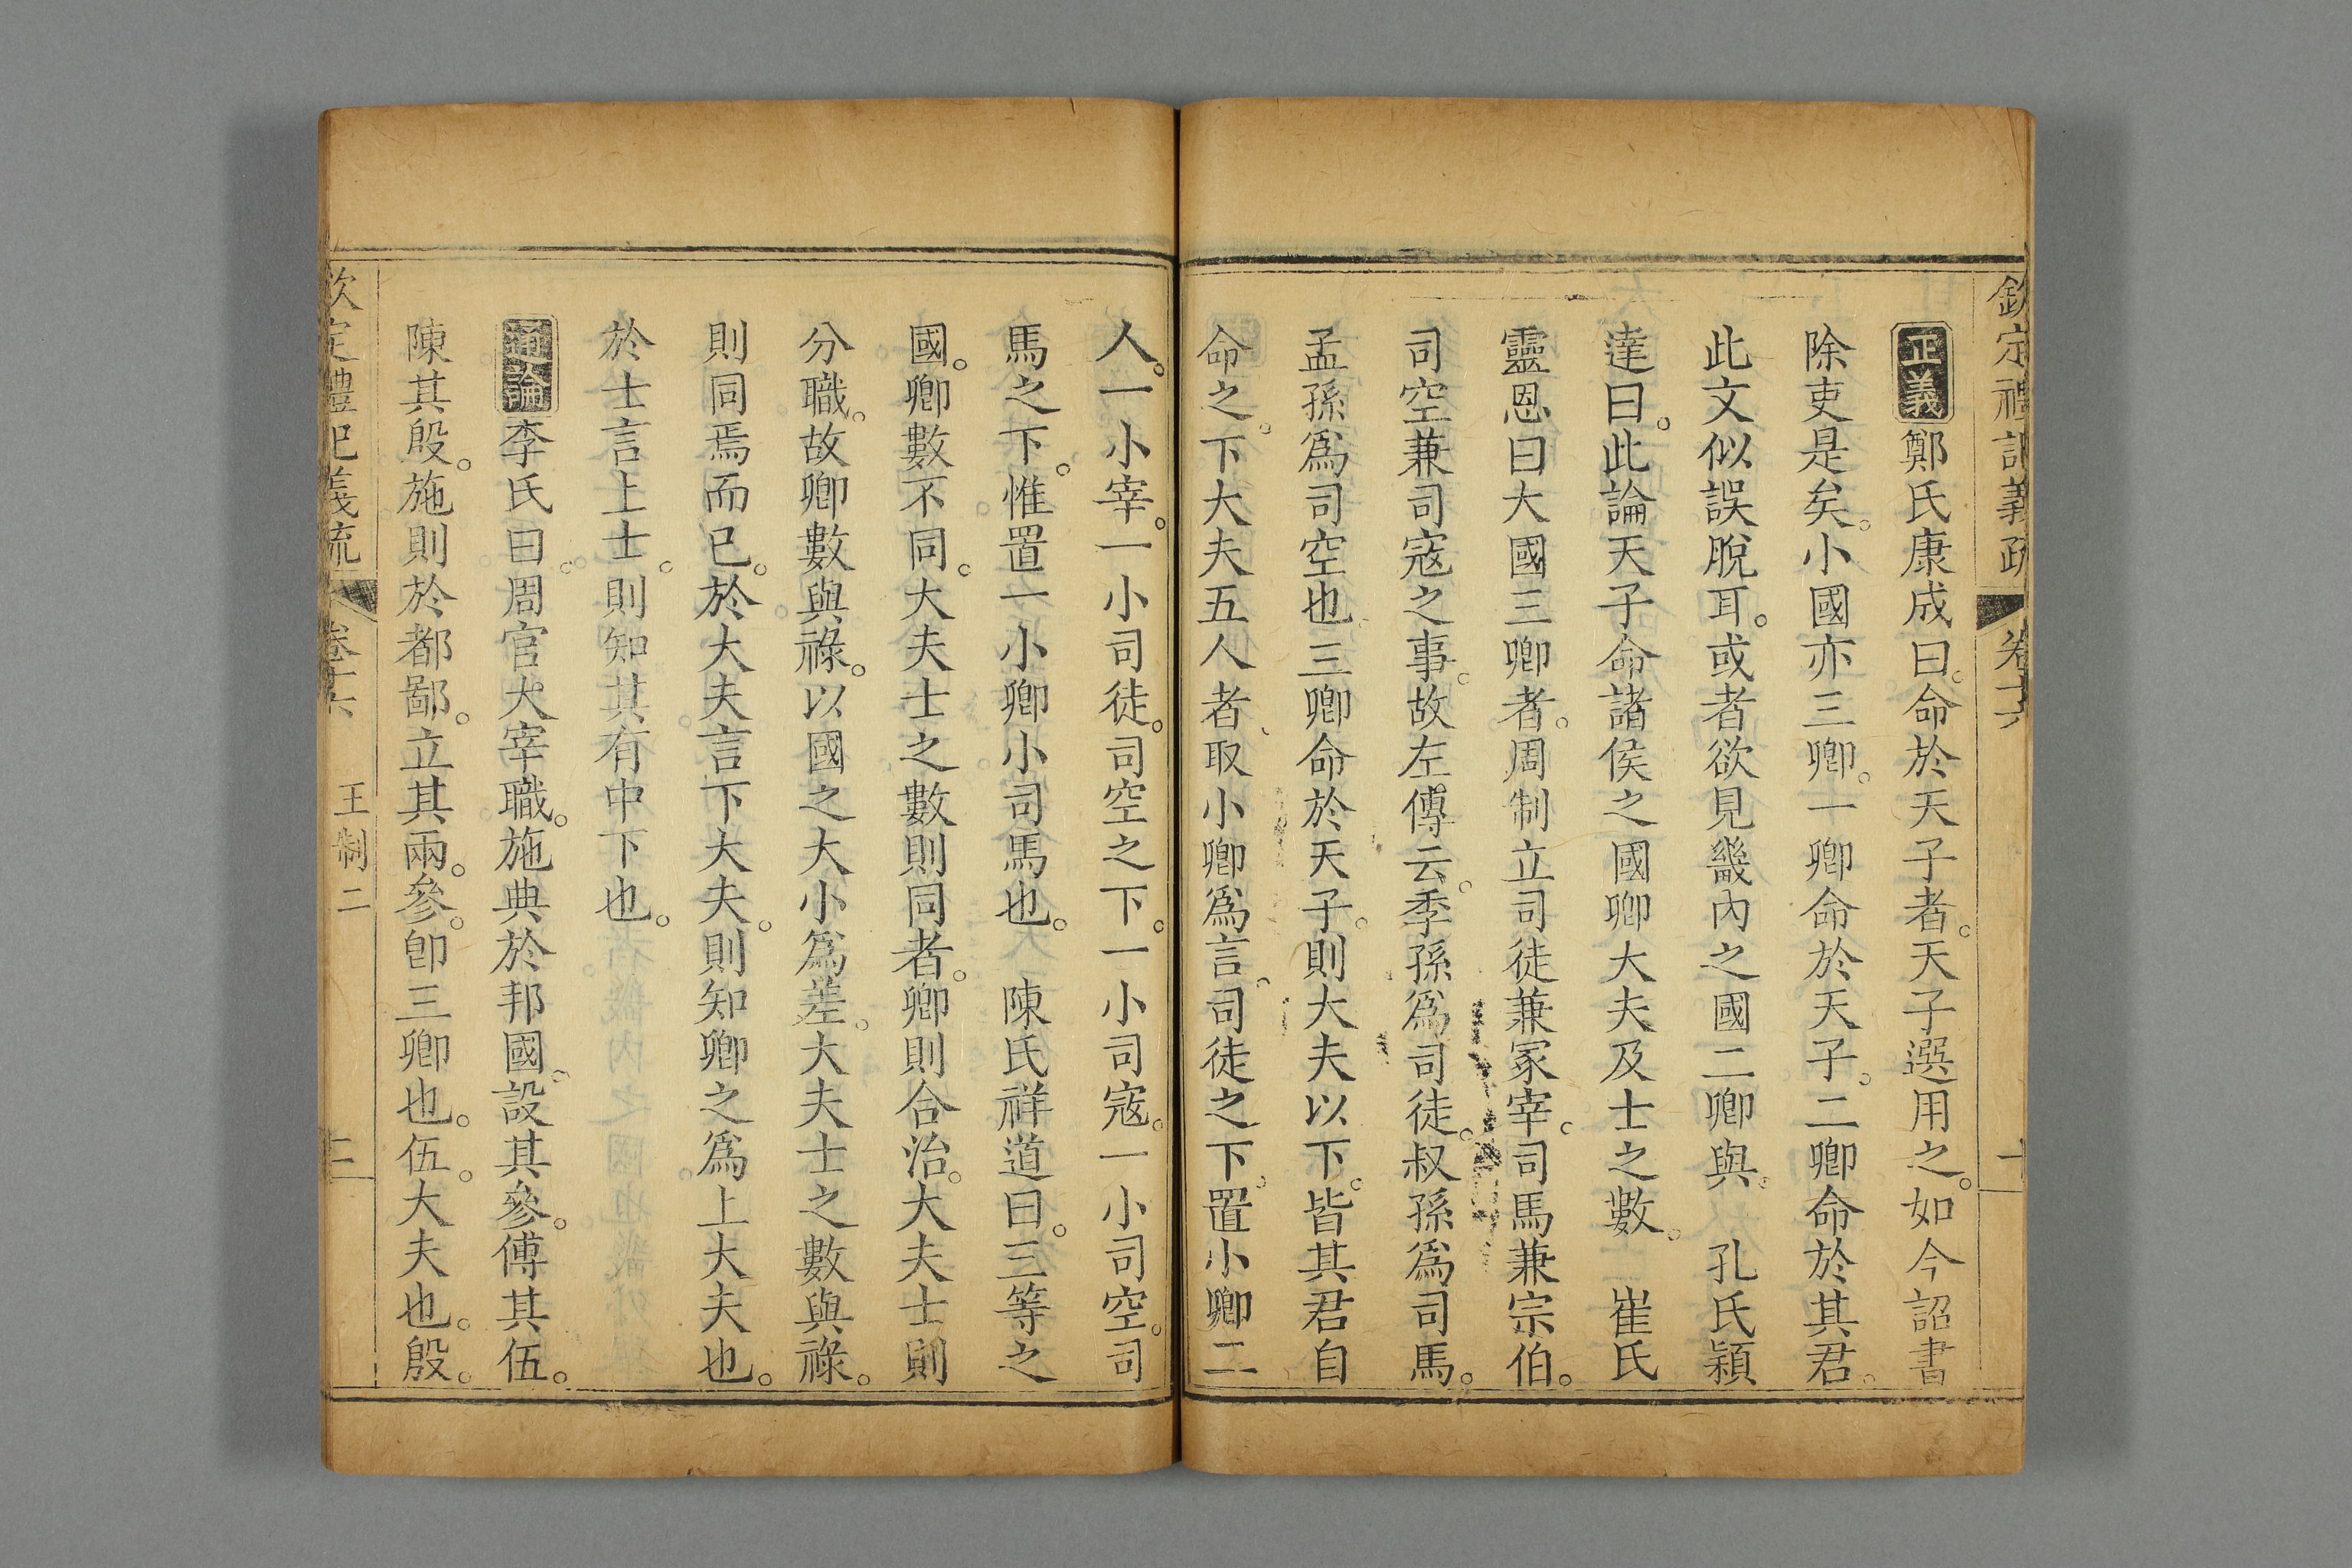 欽定禮記義疏 卷十六
正義鄭氏康成曰。命於天子者。天子選用之。如今詔書
除吏是矣。小國亦三卿。一卿命於天子。二卿命於其君。
此文似誤脫耳。或者欲見畿內之國二卿與。 孔氏穎
達曰。此論天子命諸侯之國卿大夫及士之數。 崔氏
靈恩曰大國三卿者。周制立司徒兼冢宰。司馬兼宗伯。
司空兼司寇之事。故左傳云。季孫爲司徒。叔孫爲司馬。
孟孫爲司空也三卿命於天子。則大夫以下。皆其君自
命之。下大夫五人者、取小卿爲言。司徒之下。置小卿二
人。一小宰。一小司徒。司空之下。一小司寇。一小司空。司
馬之下。惟置一小卿小司馬也。 陳氏祥道曰。三等之
國。卿數不同。大夫士之數則同者。卿則合治。大夫士則
分職。故卿數與祿。以國之大小爲差。大夫士之數與祿。
則同焉而已。於大夫言下大夫。則知卿之爲上大夫也。
於士言上士。則知其有中下也。
通論李氏曰。周官大宰職。施典於邦國。設其參。傅其伍。
陳其殷。施則於都鄙。立其兩。參。卽三卿也。伍。大夫也。殷。
欽定禮記義疏 卷十六 王制二